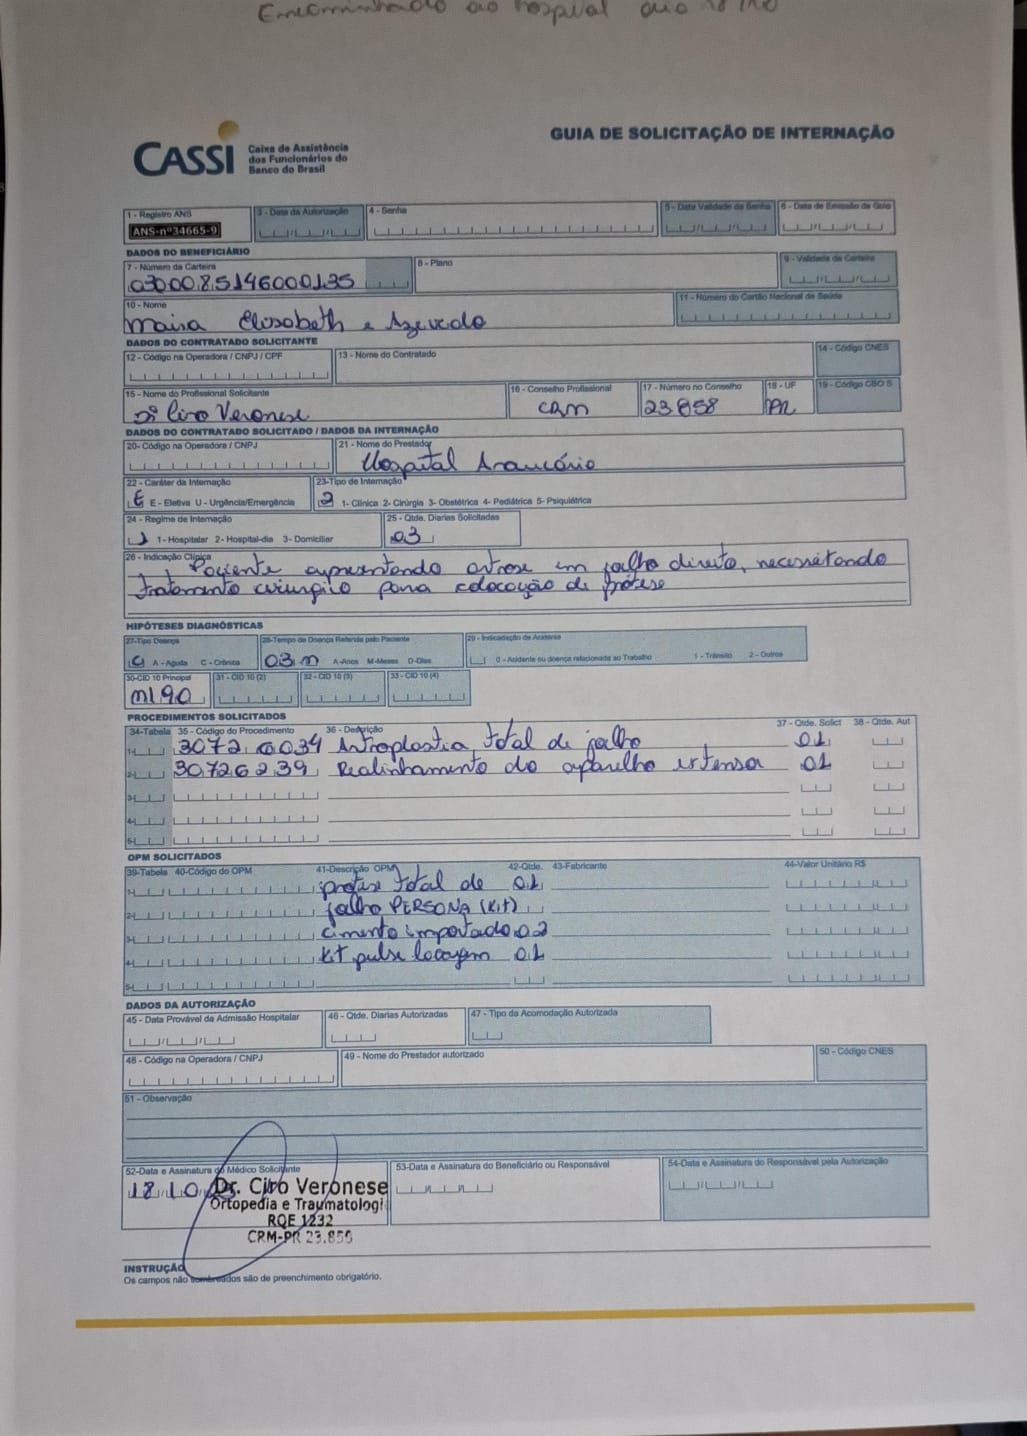 Encaminhado ao hospital dia
CASSI
Caixa de Assistência
dos Funcionários do
Banco do Brasil
GUIA DE SOLICITAÇÃO DE INTERNAÇÃO
1 - Registro ANS
ANS-nº34665-9
3 - Data da Autorização
4 - Senha
5 - Data Validade da Senha
6 - Data de Emissão da Guia
DADOS DO BENEFICIÁRIO
7 - Número da Carteira
0300085146000135
8 - Plano
9 - Validade da Carteira
10 - Nome
Maisa Elisabeth e Azevedo
11 - Número do Cartão Nacional de Saúde
DADOS DO CONTRATADO SOLICITANTE
12 - Código na Operadora / CNPJ / CPF
13 - Nome do Contratado
14 - Código CNES
15 - Nome do Profissional Solicitante
Dr Ciro Veronese
16 - Conselho Profissional
CRM
17 - Número no Conselho
23858
18 - UF
PR
19 - Código CBO S
DADOS DO CONTRATADO SOLICITADO / DADOS DA INTERNAÇÃO
20- Código na Operadora / CNPJ
21 - Nome do Prestador
Hospital Araucário
22 - Caráter da Internação
E E - Eletiva U - Urgência/Emergência
23-Tipo de Internação
2 1- Clínica 2- Cirúrgia 3- Obstétrica 4- Pediátrica 5- Psiquiátrica
24 - Regime de Internação
1 1- Hospitalar 2- Hospital-dia 3- Domiciliar
25 - Qtde. Diarias Solicitadas
03
26 - Indicação Clínica
Paciente apresentando artrose em joelho direito, necessitando
tratamento cirurgico para colocação de prótese
HIPÓTESES DIAGNÓSTICAS
27-Tipo Doença
C A - Aguda C - Crônica
28-Tempo de Doença Referida pelo Paciente
03 m A-Anos M-Meses D-Dias
29 - Indicadação de Acidente
0 - Acidente ou doença relacionada ao Trabalho 1 - Trânsito 2 - Outros
30-CID 10 Principal
M190
31 - CID 10 (2)
32 - CID 10 (3)
33 - CID 10 (4)
PROCEDIMENTOS SOLICITADOS
34-Tabela 35 - Código do Procedimento 36 - Descrição 37 - Qtde. Solict 38 - Qtde. Aut
1- 30726034 Artroplastia total de joelho 01
2- 30726239 Realinhamento do aparelho extensor 01
3-
4-
5-
OPM SOLICITADOS
39-Tabela 40-Código do OPM 41-Descrição OPM 42-Qtde. 43-Fabricante 44-Valor Unitário R$
1- protese total de 01
2- joelho PERSONA (Kit)
3- cimento importado 02
4- Kit pulse lavagem 01
5-
DADOS DA AUTORIZAÇÃO
45 - Data Provável da Admissão Hospitalar
46 - Qtde. Diarias Autorizadas
47 - Tipo da Acomodação Autorizada
48 - Código na Operadora / CNPJ
49 - Nome do Prestador autorizado
50 - Código CNES
51 - Observação
52-Data e Assinatura do Médico Solicitante
18 10
Dr. Ciro Veronese
Ortopedia e Traumatologi
RQE 1232
CRM-PR 23.856
53-Data e Assinatura do Beneficiário ou Responsável
54-Data e Assinatura do Responsável pela Autorização
INSTRUÇÃO
Os campos não sombreados são de preenchimento obrigatório.